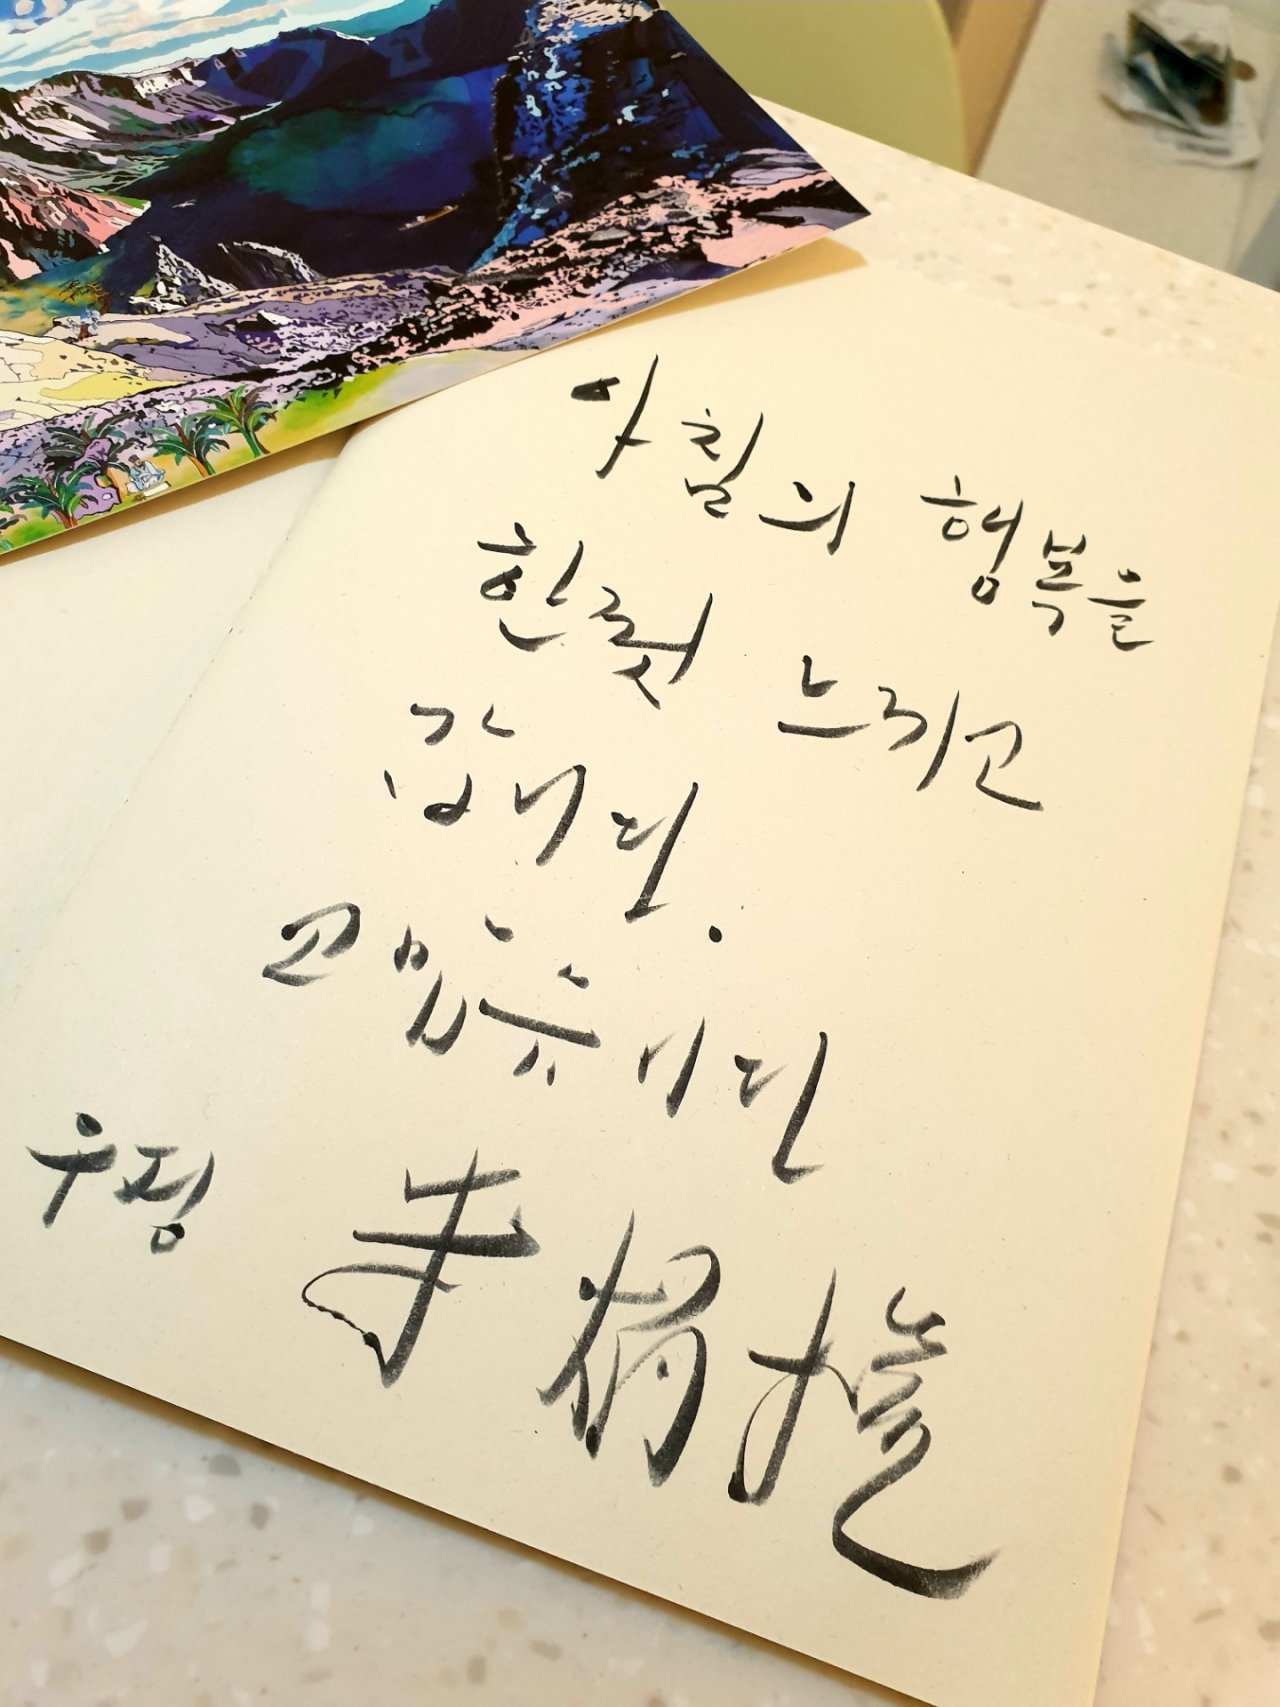 아침의 행복을
한껏 느끼고
갑니다.
고맙습니다
우정